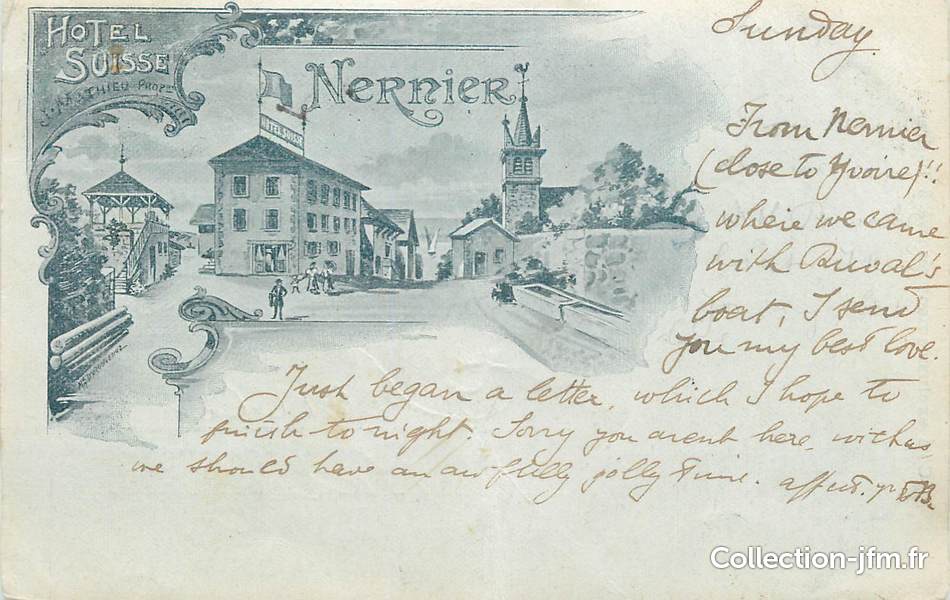 HOTEL
SUISSE
Nernier
HOTEL SUISSE
Sunday.
From Nernier
(close to Yvoire)!!
where we came
with Duval's
boat, I send
you my best love.
Just began a letter, which I hope to
finish to night. Sorry you arent here, with us,
we should have an awfully jolly time. affect. yrs
Collection-jfm.fr